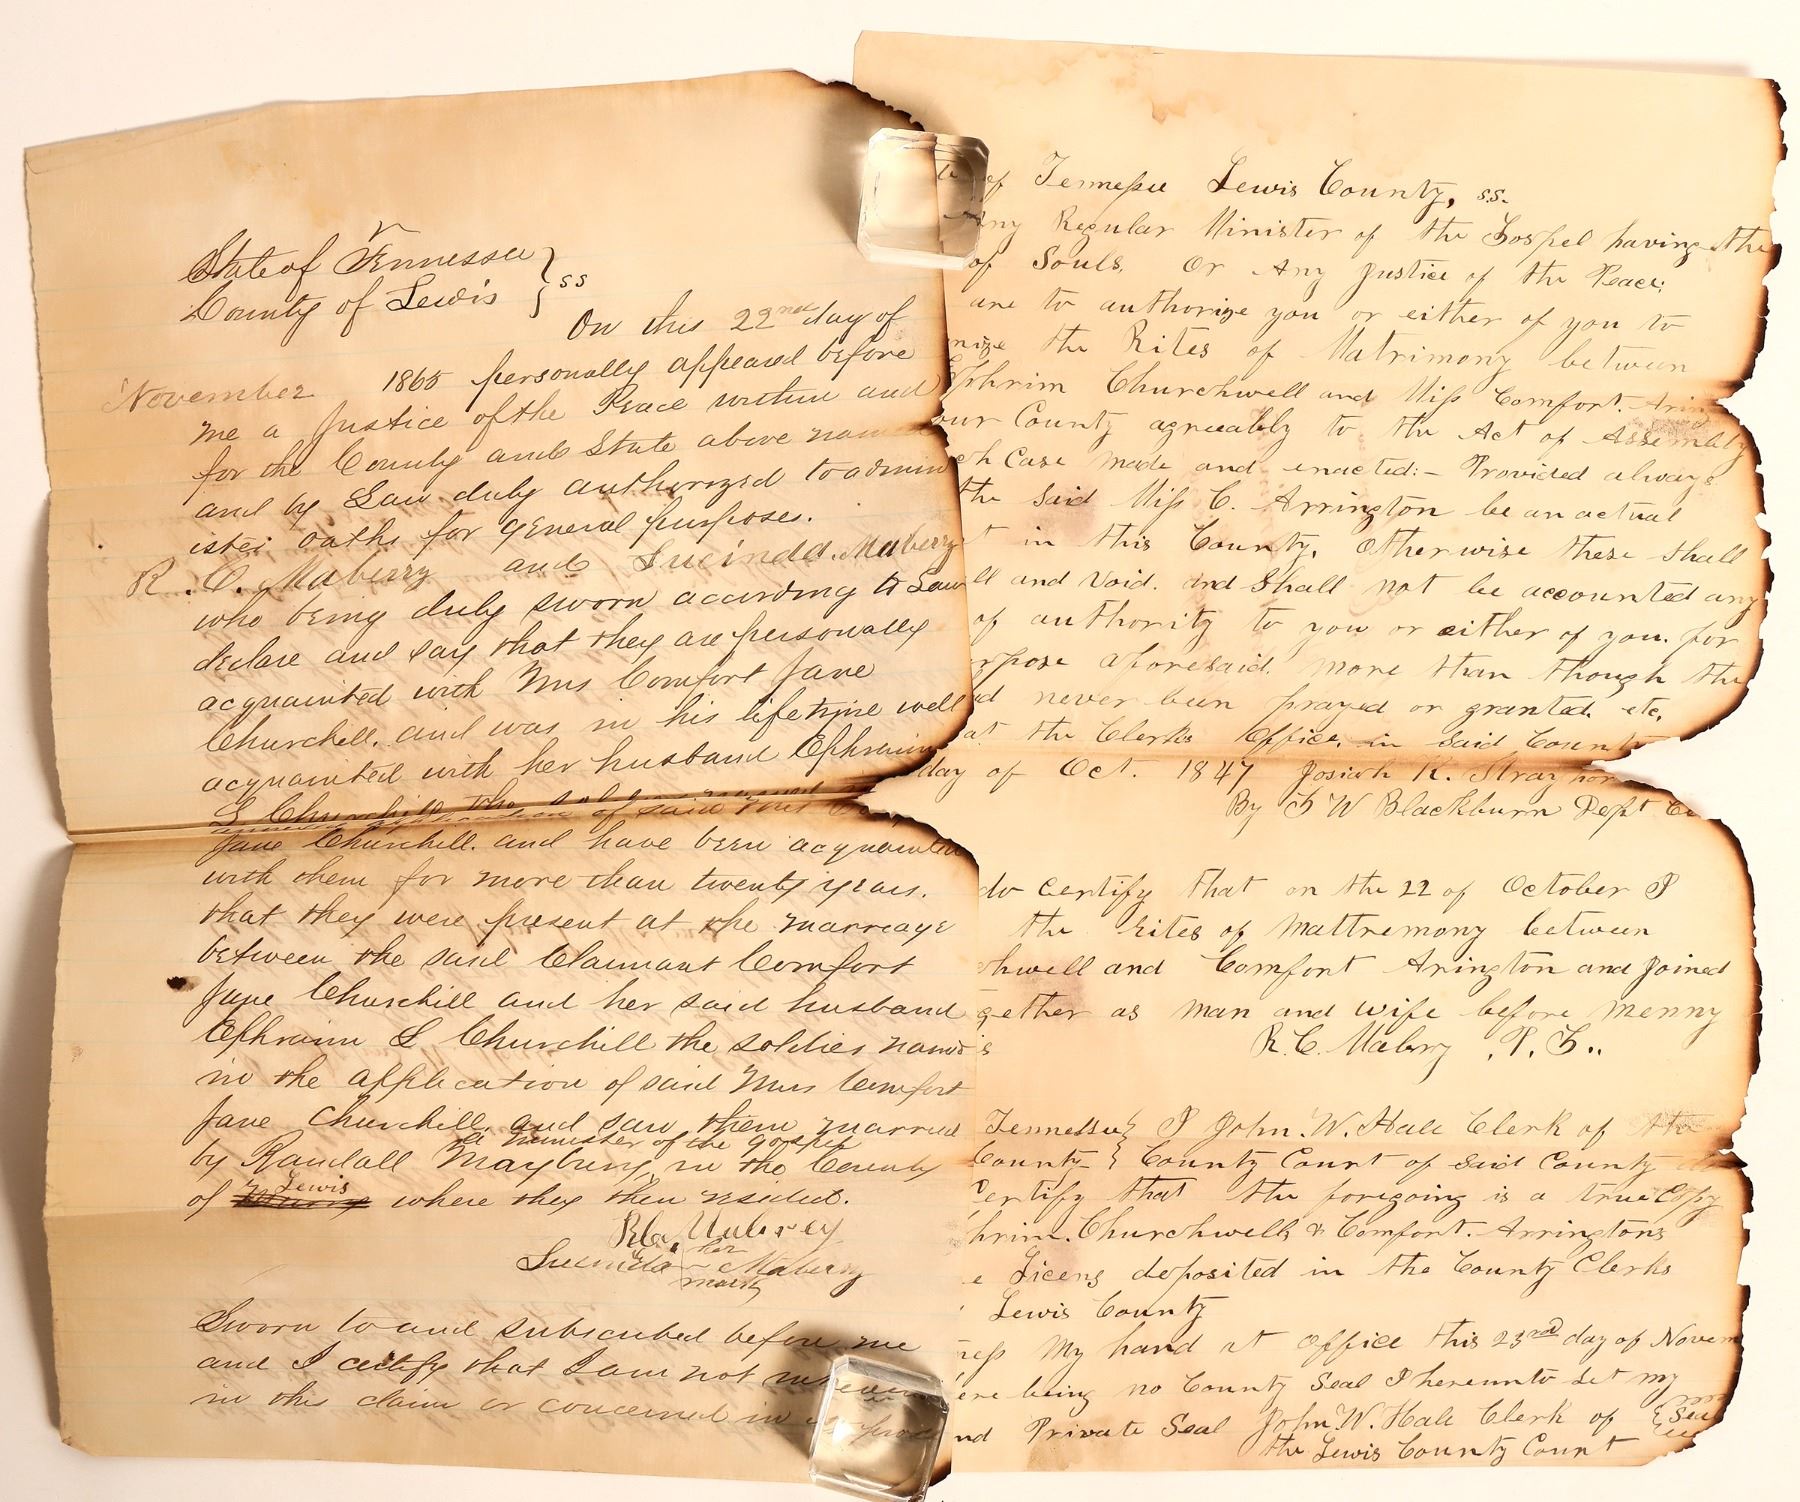 State of Tennessee } ss
County of Lewis
On this 22nd day of
November 1865 personally appeared before
me a Justice of the Peace within and
for the County and State above nam
and by Law duly authorized to admin
ister oaths for general purposes.
R. C. Maberry and Lucinda Maberry
who being duly sworn according to Law
declare and say that they are personally
acquainted with Mrs Comfort Jane
Churchill. and was in his lifetime well
acquainted with her husband Ephraim
S Churchill the soldier named
of said Mrs
Jane Churchill. and have been acquainted
with them for more than twenty years.
that they were present at the marriage
between the said Claimant Comfort
Jane Churchill and her said husband
Ephraim S Churchill the soldier named
in the application of said Mrs Comfort
Jane Churchill, and saw them married
a minister of the gospel
by Randall Mayberry, in the County
Lewis
of where they then resided.
R C. Maberey
her
Lucinda Maberry
mark
Sworn to and subscribed before me
and I certify that I am not
in this claim or concerned in
of Tennessee Lewis County, ss.
any Regular Minister of the Gospel having the
of Souls, Or Any Justice of the Peace:
are to authorize you or either of you to
nize the Rites of Matrimony between
Ephrim Churchwell and Miss Comfort. Arin
our County agreeably to the Act of Assembly
ch Case made and enacted:- Provided always
the said Miss C. Arrington be an actual
t in this County, Otherwise these shall
ll and Void. and Shall not be accounted any
of authority to you or either of you. for
rpose aforesaid. more than though the
ad never been prayed or granted. etc.
at the Clerks Office, in Said County
day of Oct. 1847 Josiah K. Stray
By G W Blackburn Dept
do certify that on the 22 of October I
the Rites of Mattremony between
chwell and Comfort Arington and Joined
gether as man and wife before menny
's R. C. Mabery .P. G..
Tennessee } I John. W. Hale Clerk of the
County } County Court of said County
Certify that the foregoing is a true Copy
hrim. Churchwells & Comfort. Arringtons
e Licens deposited in the County Clerks
Lewis County
ness My hand at Office this 23rd day of Novem
ere being no County Seal I hereunto Set my
nd Private Seal John W. Hale Clerk of {Seal
the Lewis County Court